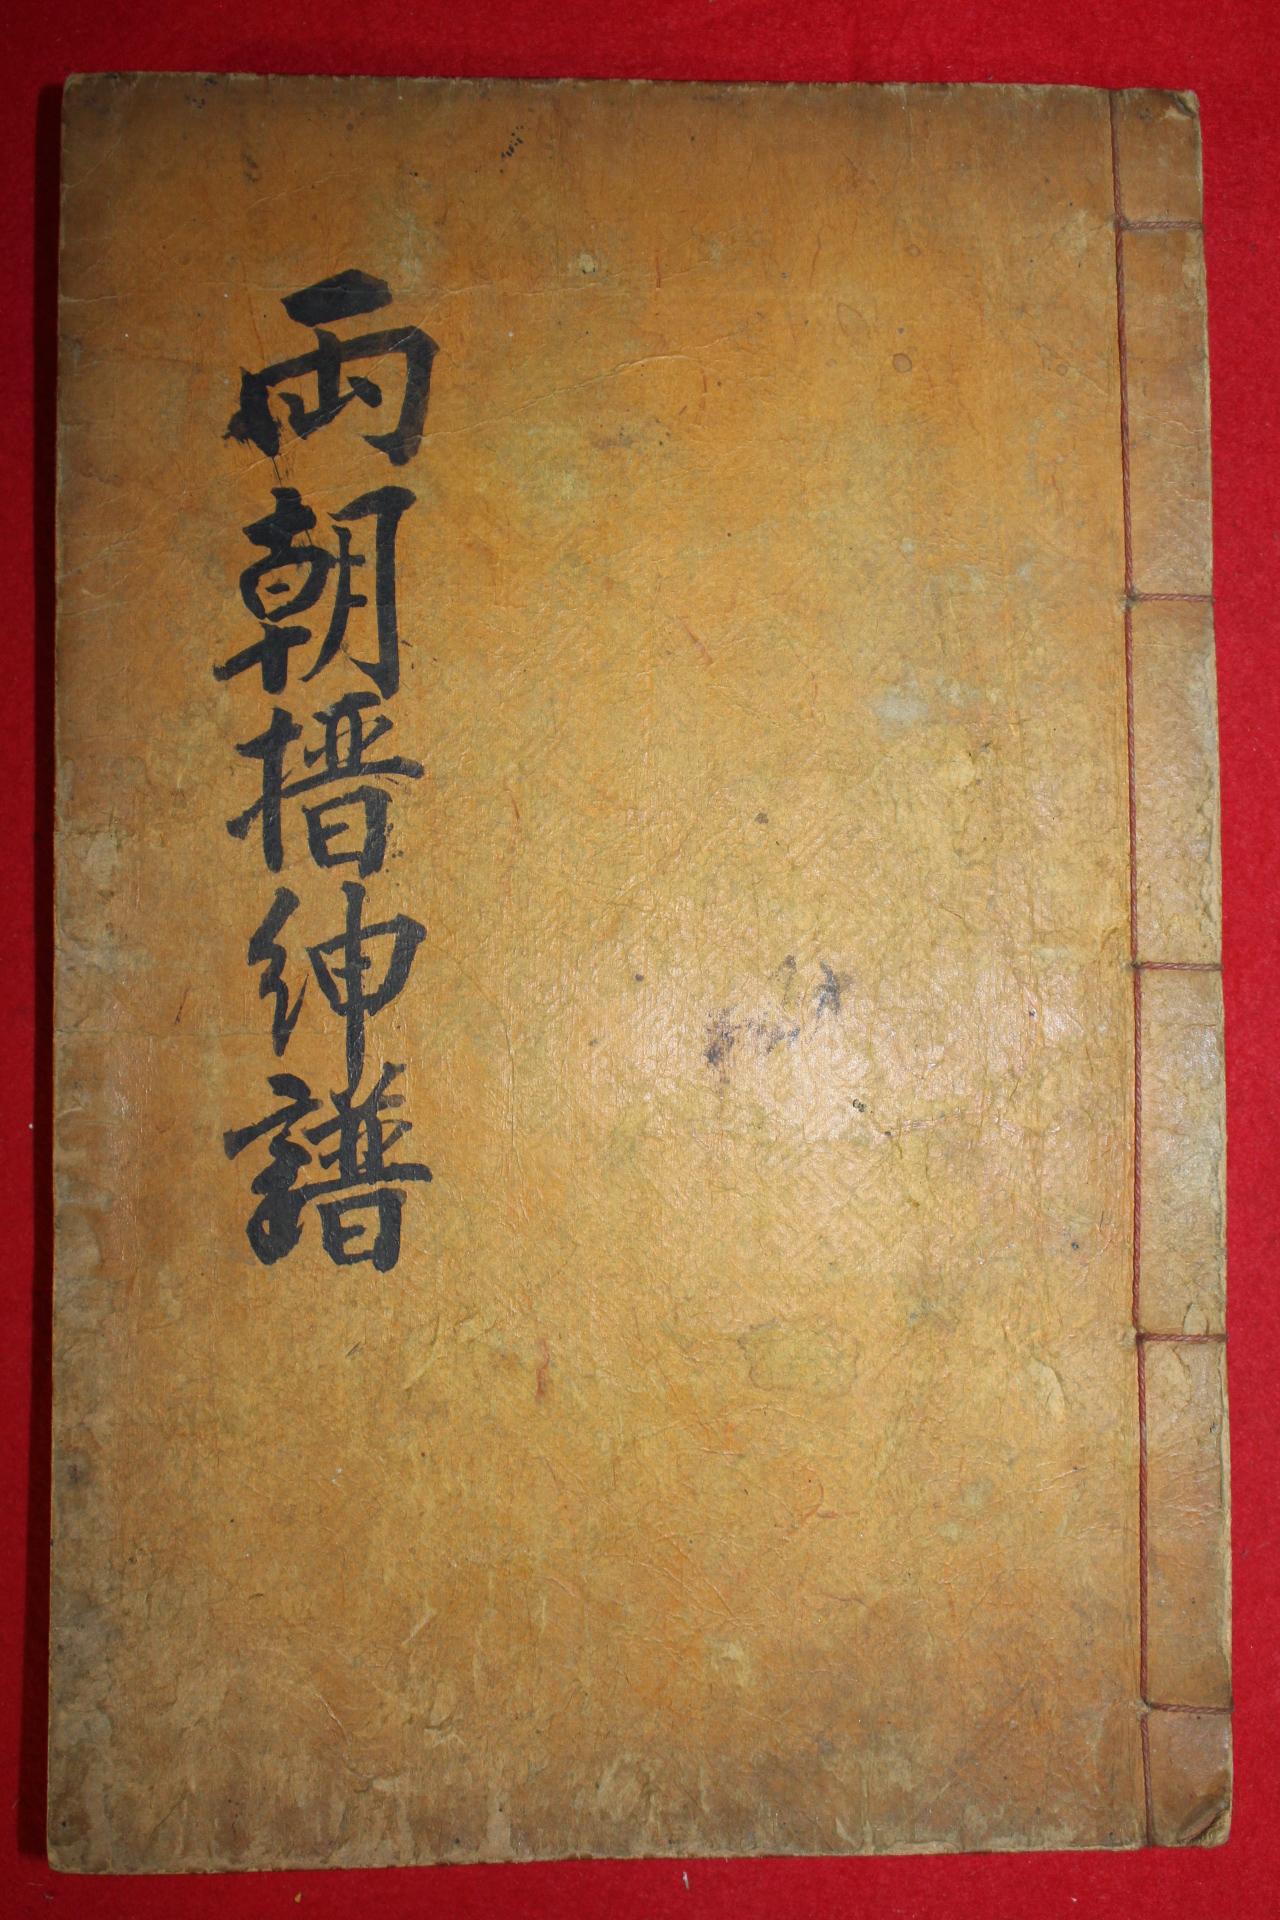 兩朝搢紳譜